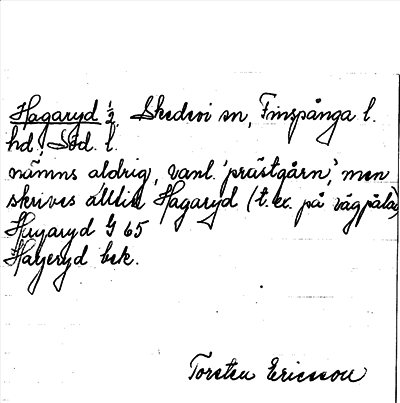 Hagaryd ½, Skedevi sn, Finspånga l.
hd, Söd. l.
nämns aldrig, vanl. 'prästgårn', men
skrives alltid Hagaryd (t. ex. på vägpålar)
Hagaryd G 65
Hageryd bek.
Torsten Ericsson